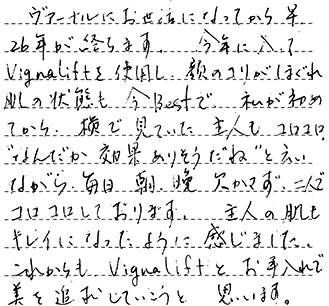 ヴァーナルにお世話になってから早
26年が経ちます。 今年に入って
Vignaliftを使用し 顔のコリがほぐれ
肌の状態も今Bestで、私が初め
てから、横で見ていた主人もコロコロ。
"なんだか効果ありそうだね"と云い
ながら、毎日朝、晩欠かさず、二人で
コロコロしております。 主人の肌も
キレイになったように感じました。
これからも Vignaliftとお手入れで
美を追求していこうと思います。